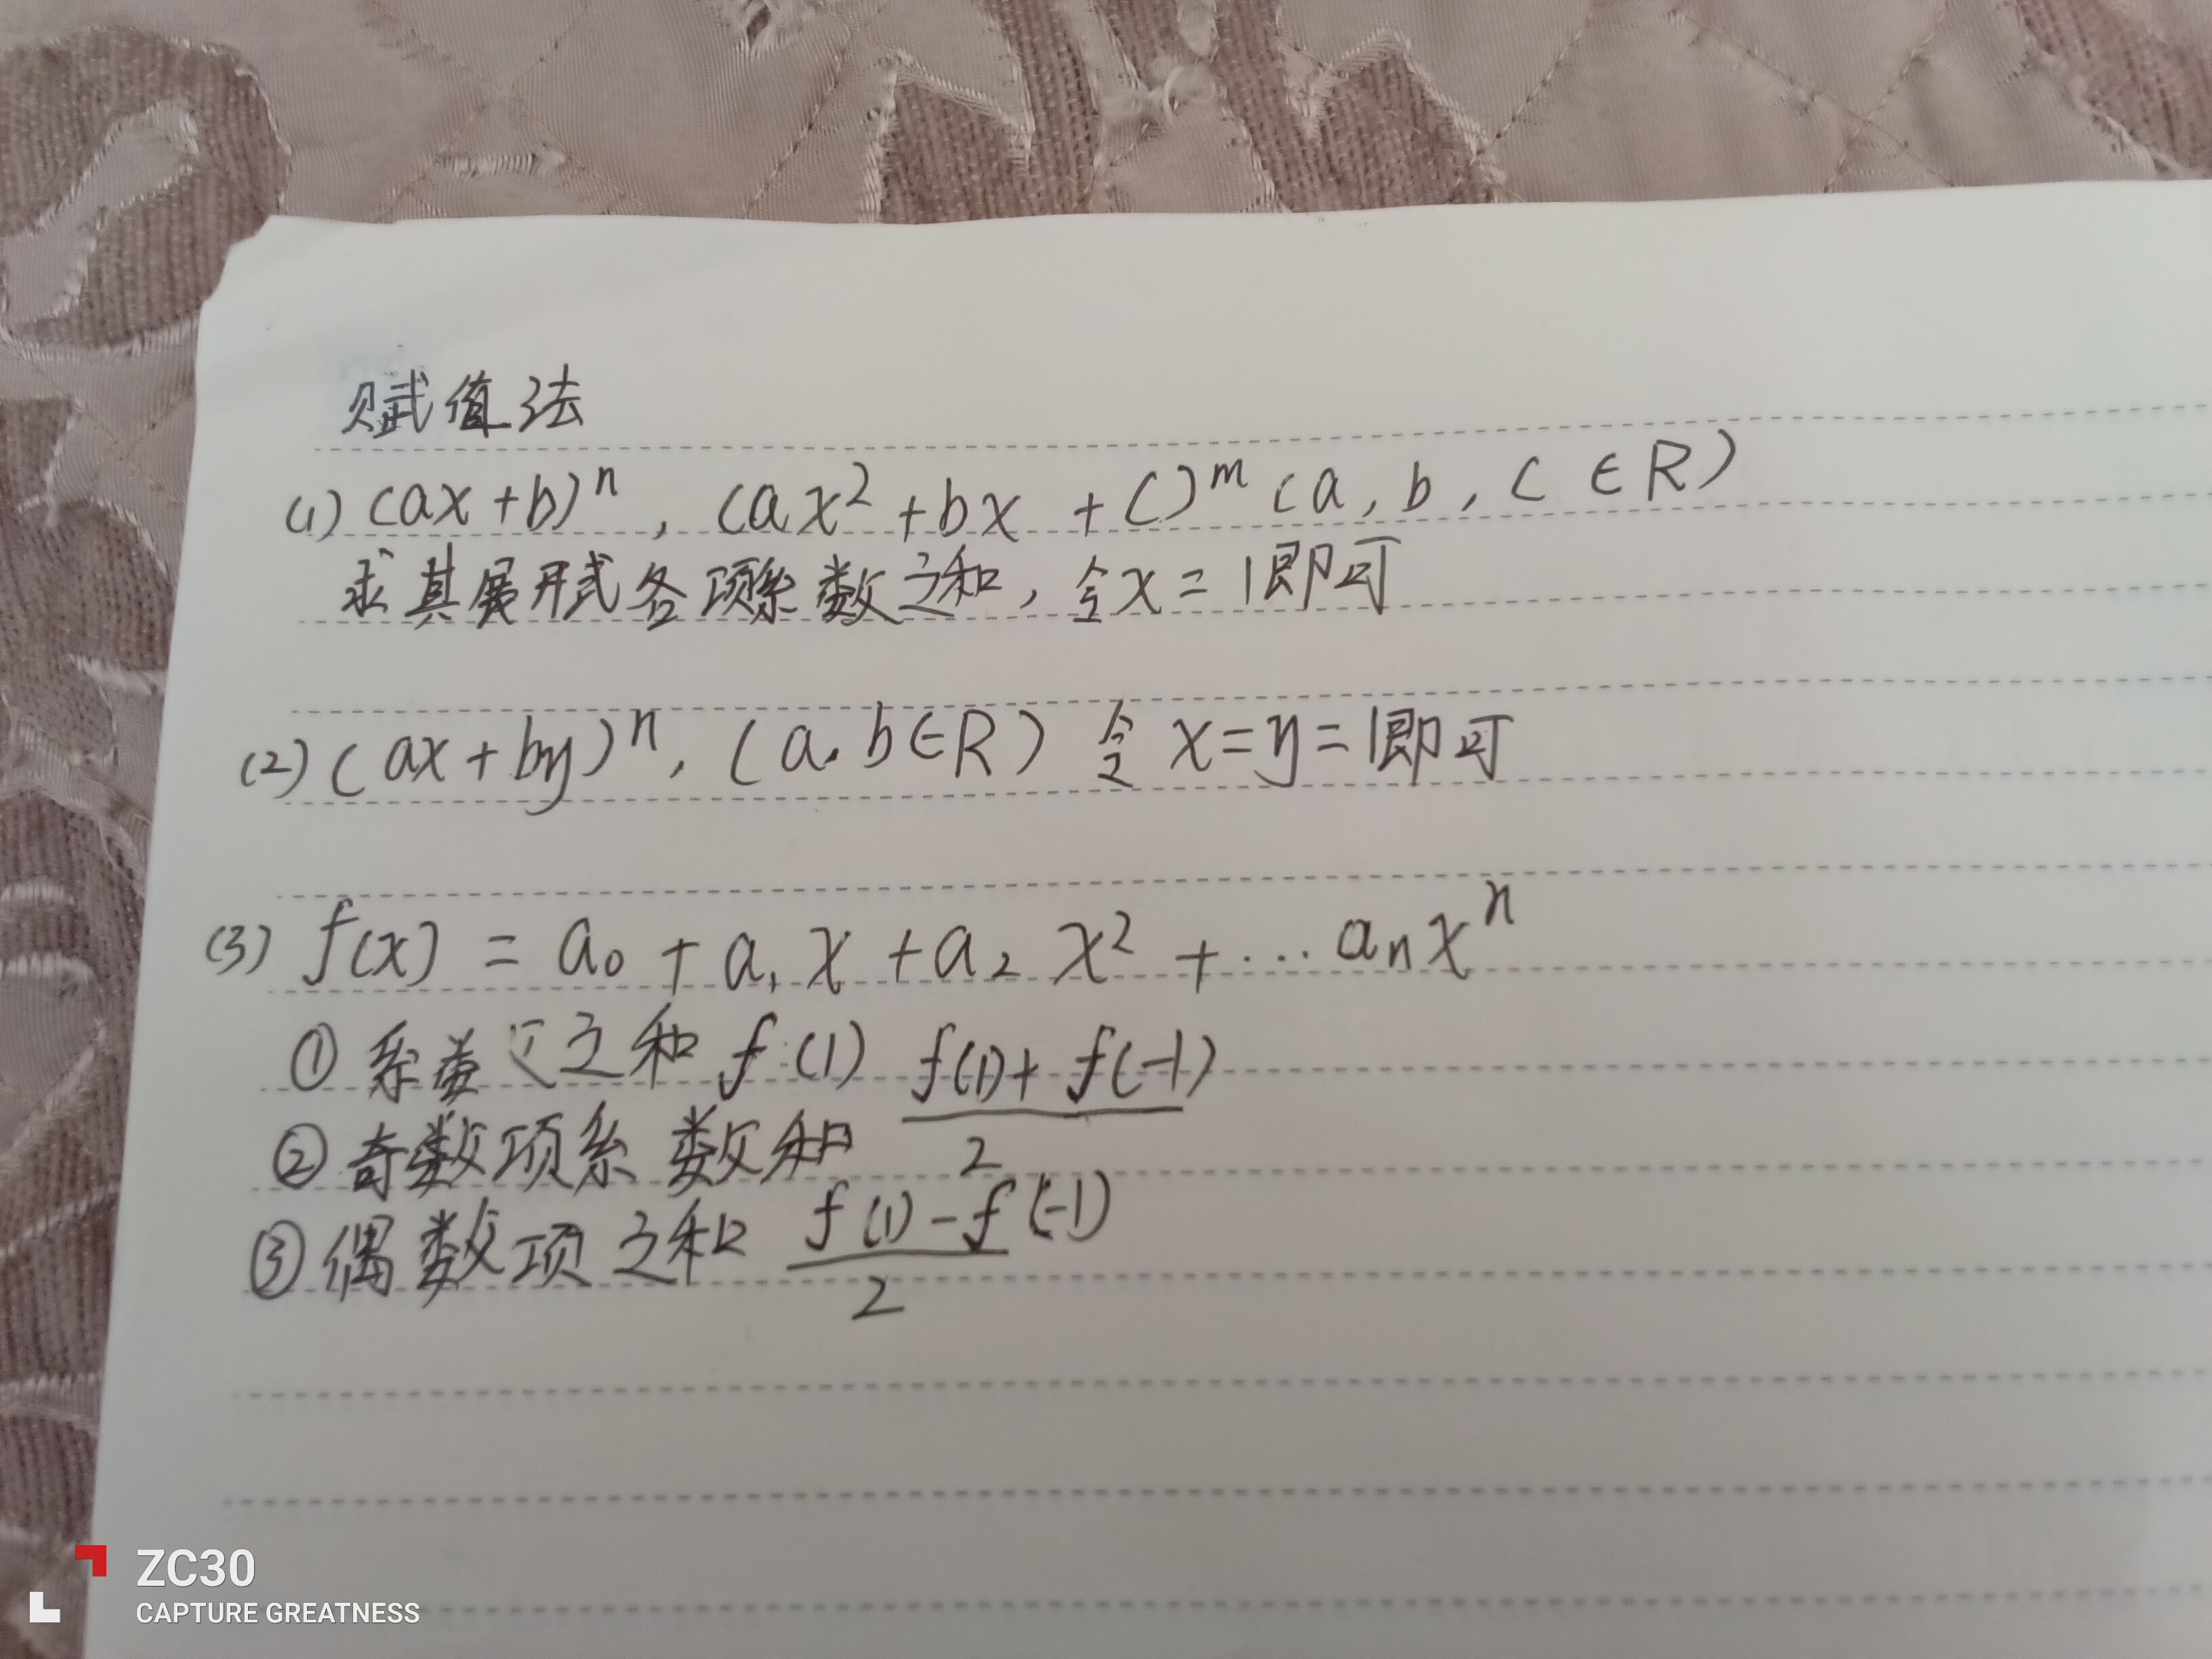 赋值法
(1) (ax+b)ⁿ, (ax²+bx+c)ᵐ (a, b, c ∈R)
求其展开式各项系数之和, 令x=1即可
(2) (ax+by)ⁿ, (a.b∈R) 令 x=y=1即可
(3) f(x) = a₀ + a₁x + a₂x² + ... aₙxⁿ
① 系数之和 f(1)
② 奇数项系数和 (f(1)+f(-1))/2
③ 偶数项之和 (f(1)-f(-1))/2
ZC30
CAPTURE GREATNESS